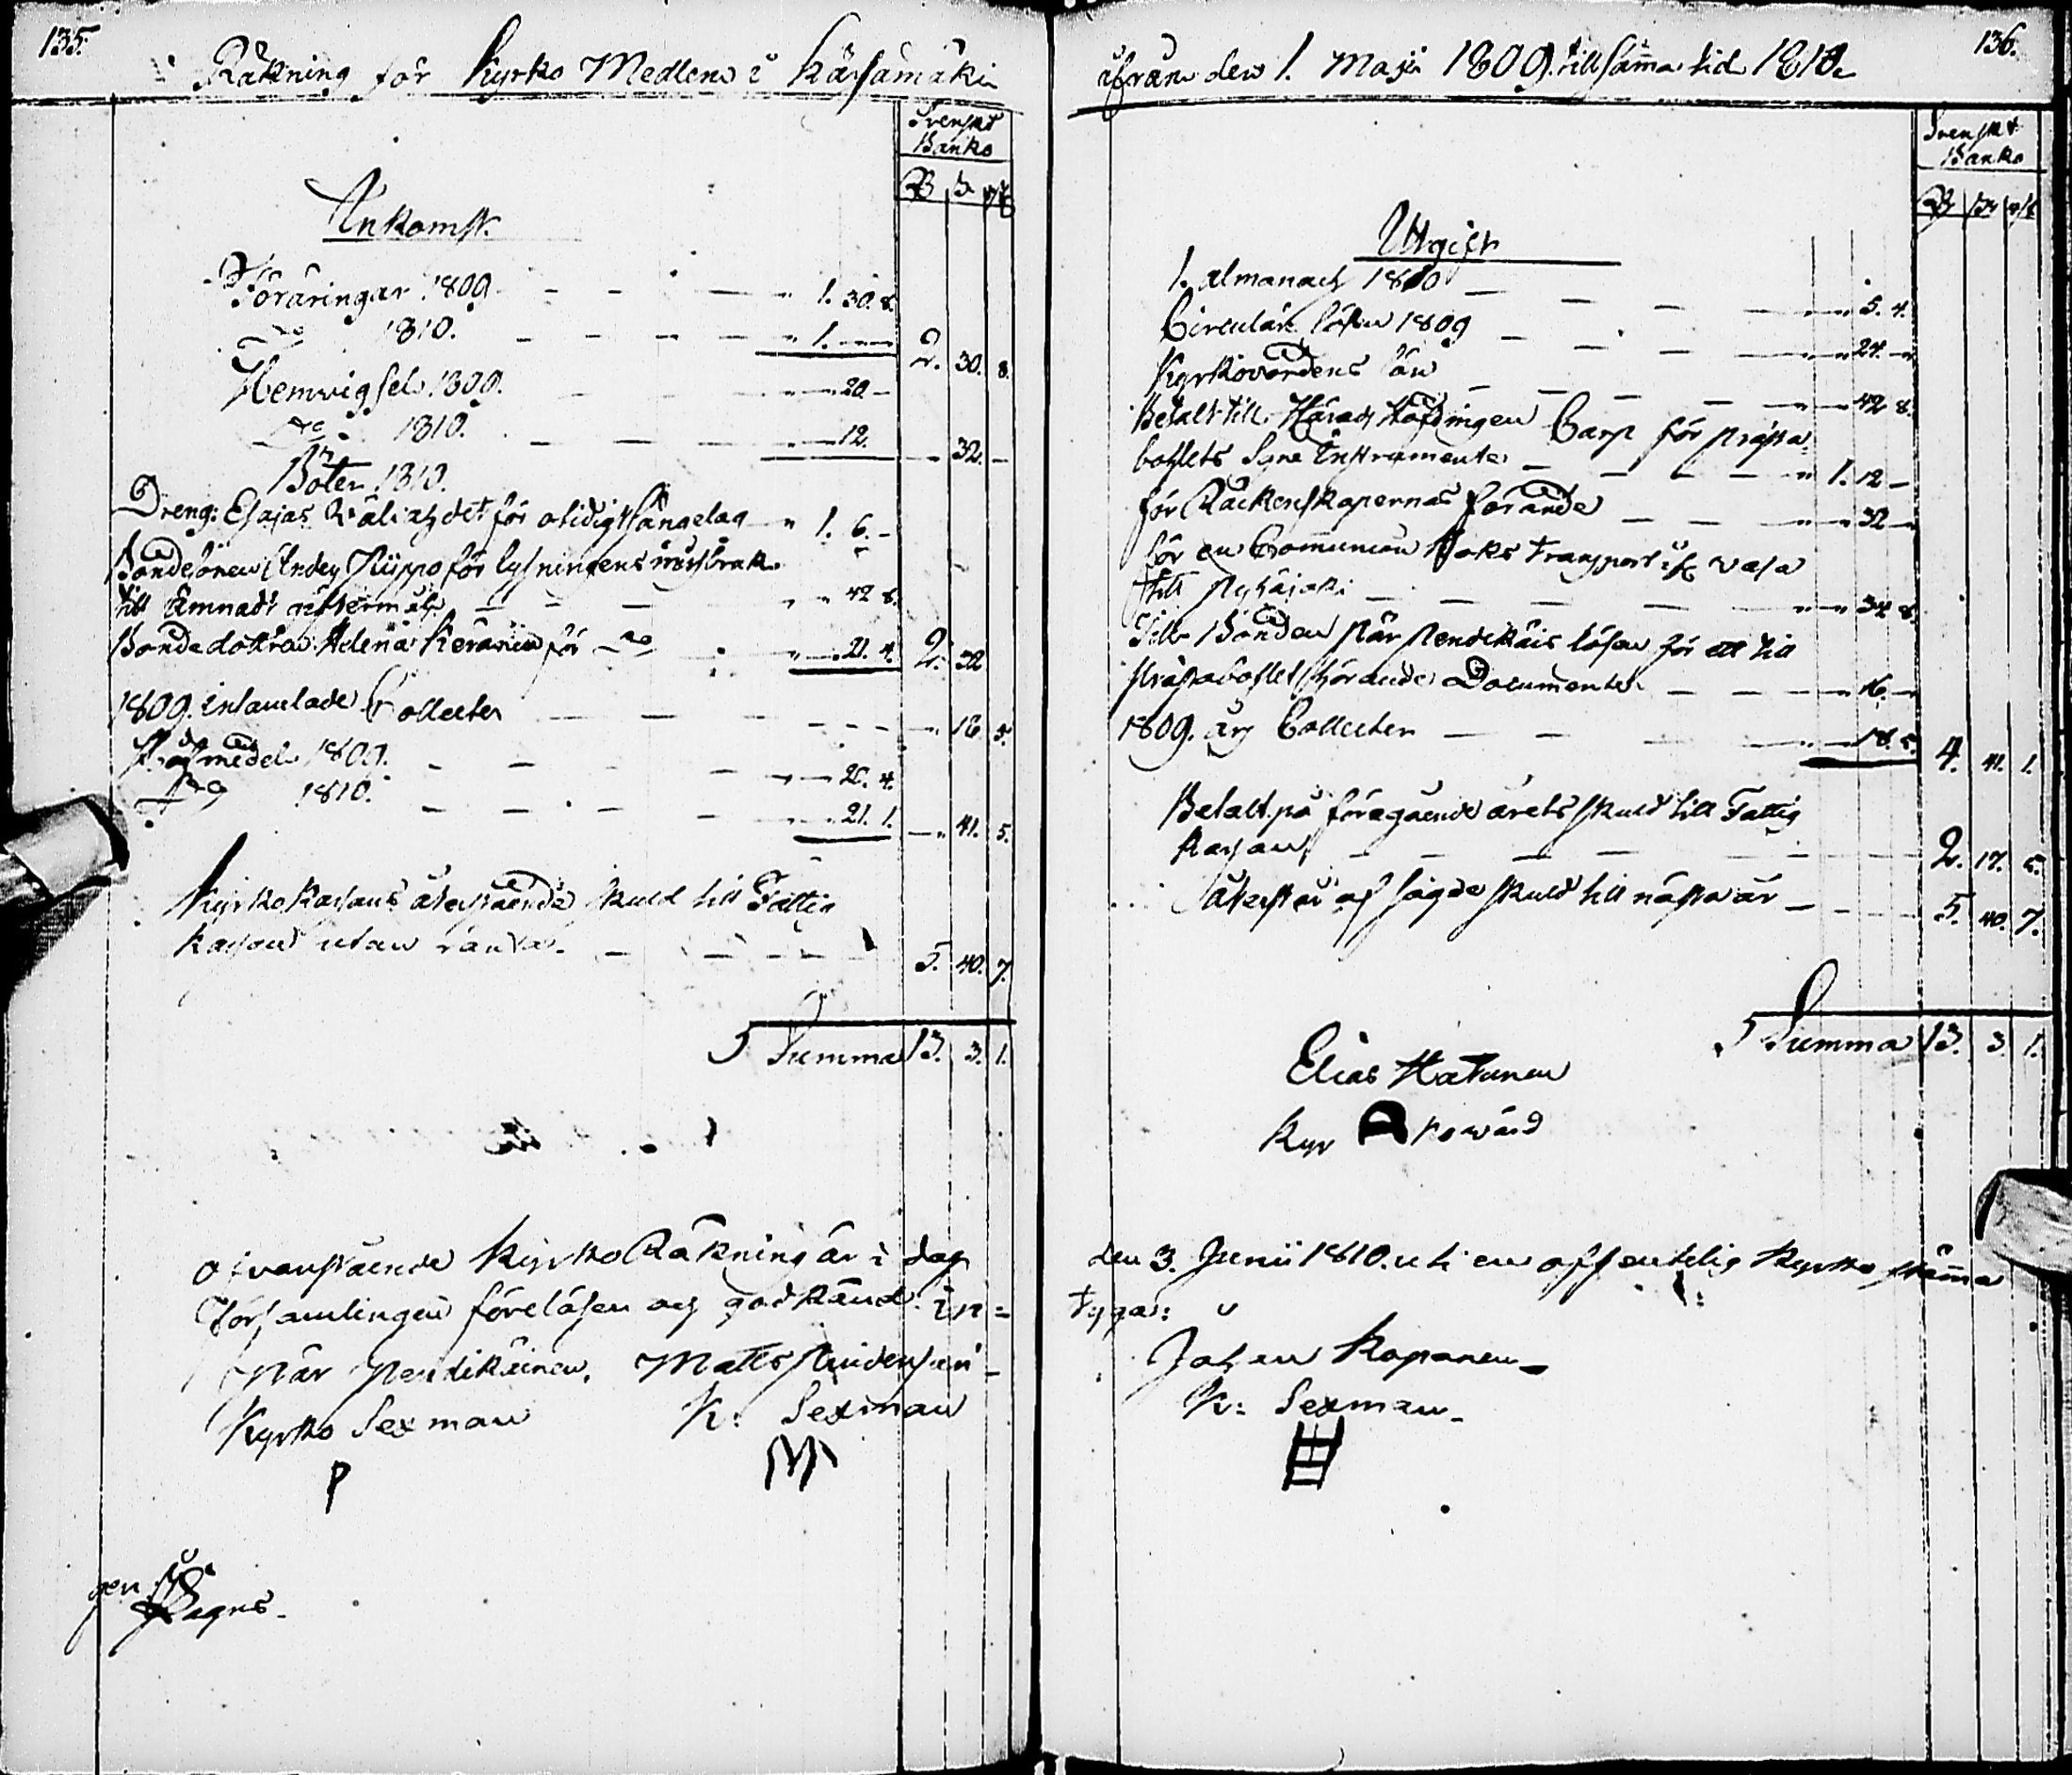 135.
Räkning för Kyrko Medlen i Kärsämäki
Svenskt
Banko
Inkomst.
Föräringar 1809 - - - " 1. 30. 8.
Do 1810. - - - - " 1. — 2. 30. 8.
Hemvigsel 1809. - - - " — 20 —
Do 1810. - - - - " — 12. — " 32. —
Böter 1810.
Dreng: Esajas för otidigt Sängelag " 1. 6. —
Bondesonen Anders Niippo för lysningens missbruk
till ämnadt äktermåhl - - - " " 42 8.
Bondedottren Helena Keränen för Do " — 21. 4. 2. 22
1809. insamlade Collecter - - - — " 18 5.
Håfmedel 1809. - - - - " — 20. 4.
Do 1810. - - - - " — 21. 1. — " 41. 5.
Kyrko Kassans återstående skuld till Fattig
kassan utan ränta. - - - - 5. 40. 7.
Summa 13. 3. 1.
ofvanstående Kyrko Räkning är i dag
församlingen föreläsen och godkänd: in=
Pär Pendikäinen. Matts
Kyrko Sexman K: Sexman
P M
136.
ifrån den 1. Maji 1809. till samma tid 1810.
Svenskt
Banko
Utgift
1. Almanach 1810 - - - - " — 5. 4.
Circulair lösen 1809 - - - " — 24. —
Kyrkovärdens lön - - - - " — 42 8.
Betalt till Härads Höfdingen Carp för prästa
bohlets Syne Instrumente - - - " 1. 12 —
för Räckenskapernas förande - - - " — 32 —
för en Communion Saks transport if. Vasa
till Pyhäjoki - - - - " — 34 8.
Till Bonden Pär Pendikäis lösen för ett till
prästabohlet hörande Documenter - - " — 16. —
1809. års Collecter - - - " — 18. 5. 4. 41. 1.
Betalt på föregående årets skuld till Fattig
Kassan - - - - - 2. 17. 5.
återstår af sagde skuld till nästa år - - 5. 40. 7.
Summa 13. 3. 1.
Elias Hatunen
Kyr kowärd
den 3. Junii 1810. uti en offentelig Kyrko stämma
tygar:
Johan Koparen
K: Sexman